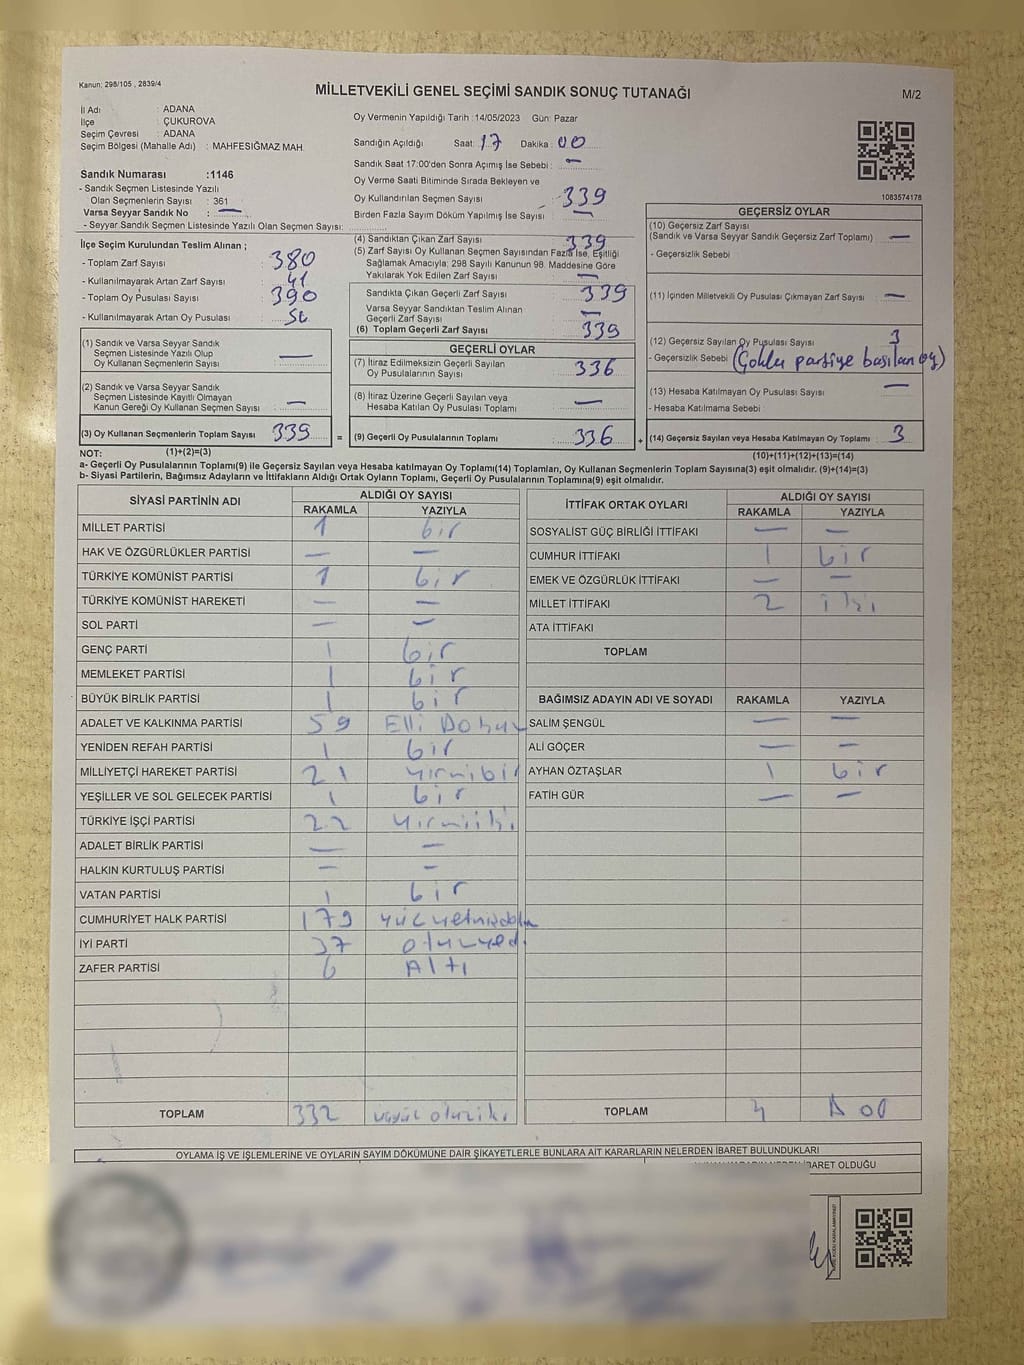 Kanun: 298/105 , 2839/4
MİLLETVEKİLİ GENEL SEÇİMİ SANDIK SONUÇ TUTANAĞI
M/2
İl Adı : ADANA
İlçe : ÇUKUROVA
Seçim Çevresi : ADANA
Seçim Bölgesi (Mahalle Adı) : MAHFESIĞMAZ MAH.
Oy Vermenin Yapıldığı Tarih :14/05/2023 Gün: Pazar
Sandığın Açıldığı Saat: 17 Dakika: 00
Sandık Saat 17:00'den Sonra Açımış İse Sebebi : —
Oy Verme Saati Bitiminde Sırada Bekleyen ve
Oy Kullandırılan Seçmen Sayısı 339
Birden Fazla Sayım Döküm Yapılmış İse Sayısı —
1083574178
Sandık Numarası :1146
- Sandık Seçmen Listesinde Yazılı
Olan Seçmenlerin Sayısı : 361
Varsa Seyyar Sandık No : —
- Seyyar Sandık Seçmen Listesinde Yazılı Olan Seçmen Sayısı:
İlçe Seçim Kurulundan Teslim Alınan ;
- Toplam Zarf Sayısı : 380
- Kullanılmayarak Artan Zarf Sayısı : 41
- Toplam Oy Pusulası Sayısı : 390
- Kullanılmayarak Artan Oy Pusulası :
(1) Sandık ve Varsa Seyyar Sandık
Seçmen Listesinde Yazılı Olup
Oy Kullanan Seçmen Sayısı —
(2) Sandık ve Varsa Seyyar Sandık
Seçmen Listesinde Kayıtlı Olmayan
Kanun Gereği Oy Kullanan Seçmen Sayısı —
(3) Oy Kullanan Seçmenlerin Toplam Sayısı 339 =
(1)+(2)=(3)
(4) Sandıktan Çıkan Zarf Sayısı 339
(5) Zarf Sayısı Oy Kullanan Seçmen Sayısından Fazla İse, Eşitliği
Sağlamak Amacıyla; 298 Sayılı Kanunun 98. Maddesine Göre
Yakılarak Yok Edilen Zarf Sayısı —
Sandıkta Çıkan Geçerli Zarf Sayısı 339
Varsa Seyyar Sandıktan Teslim Alınan
Geçerli Zarf Sayısı —
(6) Toplam Geçerli Zarf Sayısı 339
GEÇERLİ OYLAR
(7) İtiraz Edilmeksizin Geçerli Sayılan
Oy Pusulalarının Sayısı 336
(8) İtiraz Üzerine Geçerli Sayılan veya
Hesaba Katılan Oy Pusulası Toplamı —
(9) Geçerli Oy Pusulalarının Toplamı 336 +
GEÇERSİZ OYLAR
(10) Geçersiz Zarf Sayısı
(Sandık ve Varsa Seyyar Sandık Geçersiz Zarf Toplamı) —
- Geçersizlik Sebebi
(11) İçinden Milletvekili Oy Pusulası Çıkmayan Zarf Sayısı —
(12) Geçersiz Sayılan Oy Pusulası Sayısı 3
- Geçersizlik Sebebi (Çoklu partiye basılan oy)
(13) Hesaba Katılmayan Oy Pusulası Sayısı —
- Hesaba Katılmama Sebebi
(14) Geçersiz Sayılan veya Hesaba Katılmayan Oy Toplamı 3
(10)+(11)+(12)+(13)=(14)
NOT:
a- Geçerli Oy Pusulalarının Toplamı(9) ile Geçersiz Sayılan veya Hesaba katılmayan Oy Toplamı(14) Toplamları, Oy Kullanan Seçmenlerin Toplam Sayısına(3) eşit olmalıdır. (9)+(14)=(3)
b- Siyasi Partilerin, Bağımsız Adayların ve İttifakların Aldığı Ortak Oyların Toplamı, Geçerli Oy Pusulalarının Toplamına(9) eşit olmalıdır.
SİYASİ PARTİNİN ADI ALDIĞI OY SAYISI
RAKAMLA YAZIYLA
MİLLET PARTİSİ 1 bir
HAK VE ÖZGÜRLÜKLER PARTİSİ — —
TÜRKİYE KOMÜNİST PARTİSİ 1 bir
TÜRKİYE KOMÜNİST HAREKETİ — —
SOL PARTİ — —
GENÇ PARTİ 1 bir
MEMLEKET PARTİSİ 1 bir
BÜYÜK BİRLİK PARTİSİ 1 bir
ADALET VE KALKINMA PARTİSİ 59 Elli Dokuz
YENİDEN REFAH PARTİSİ 1 bir
MİLLİYETÇİ HAREKET PARTİSİ 21 yirmibir
YEŞİLLER VE SOL GELECEK PARTİSİ 1 bir
TÜRKİYE İŞÇİ PARTİSİ 22 yirmiiki
ADALET BİRLİK PARTİSİ — —
HALKIN KURTULUŞ PARTİSİ — —
VATAN PARTİSİ 1 bir
CUMHURİYET HALK PARTİSİ 179
İYİ PARTİ 37 otuzyedi
ZAFER PARTİSİ 6 Altı
TOPLAM 332
İTTİFAK ORTAK OYLARI ALDIĞI OY SAYISI
RAKAMLA YAZIYLA
SOSYALİST GÜÇ BİRLİĞİ İTTİFAKI — —
CUMHUR İTTİFAKI 1 bir
EMEK VE ÖZGÜRLÜK İTTİFAKI — —
MİLLET İTTİFAKI 2 iki
ATA İTTİFAKI
TOPLAM
BAĞIMSIZ ADAYIN ADI VE SOYADI RAKAMLA YAZIYLA
SALİM ŞENGÜL — —
ALİ GÖÇER — —
AYHAN ÖZTAŞLAR 1 bir
FATİH GÜR — —
TOPLAM 4
OYLAMA İŞ VE İŞLEMLERİNE VE OYLARIN SAYIM DÖKÜMÜNE DAİR ŞİKAYETLERLE BUNLARA AİT KARARLARIN NELERDEN İBARET BULUNDUKLARI
İBARET OLDUĞU